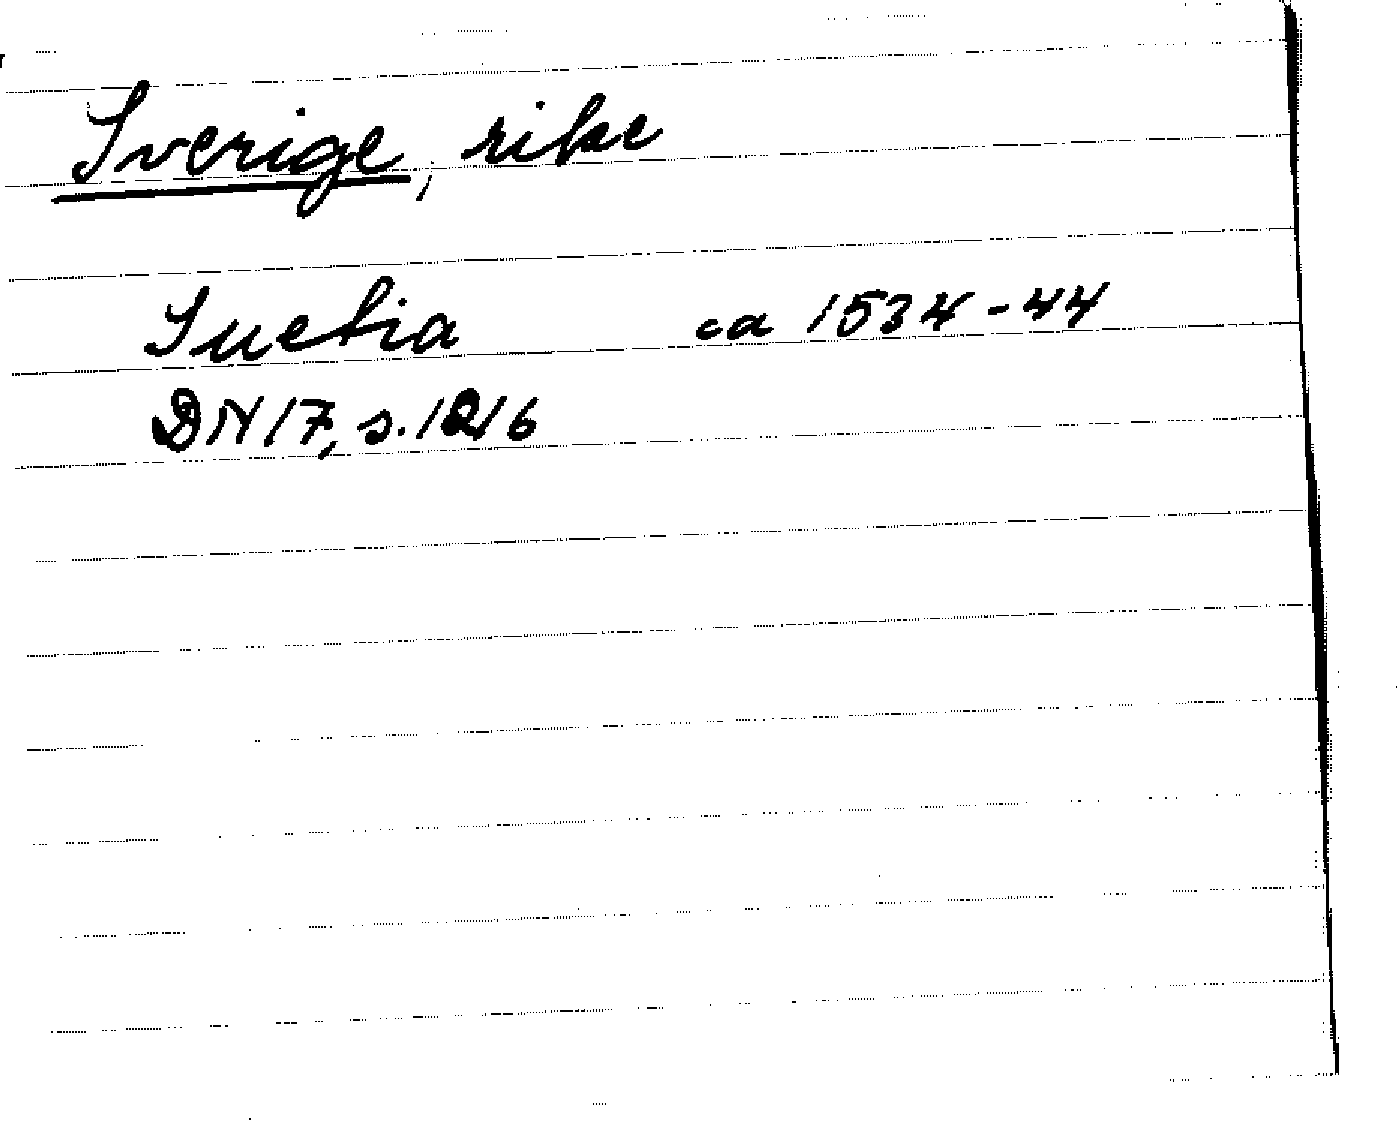 Sverige, rike
Suetia ca 1534-44
DN 17, s. 1216